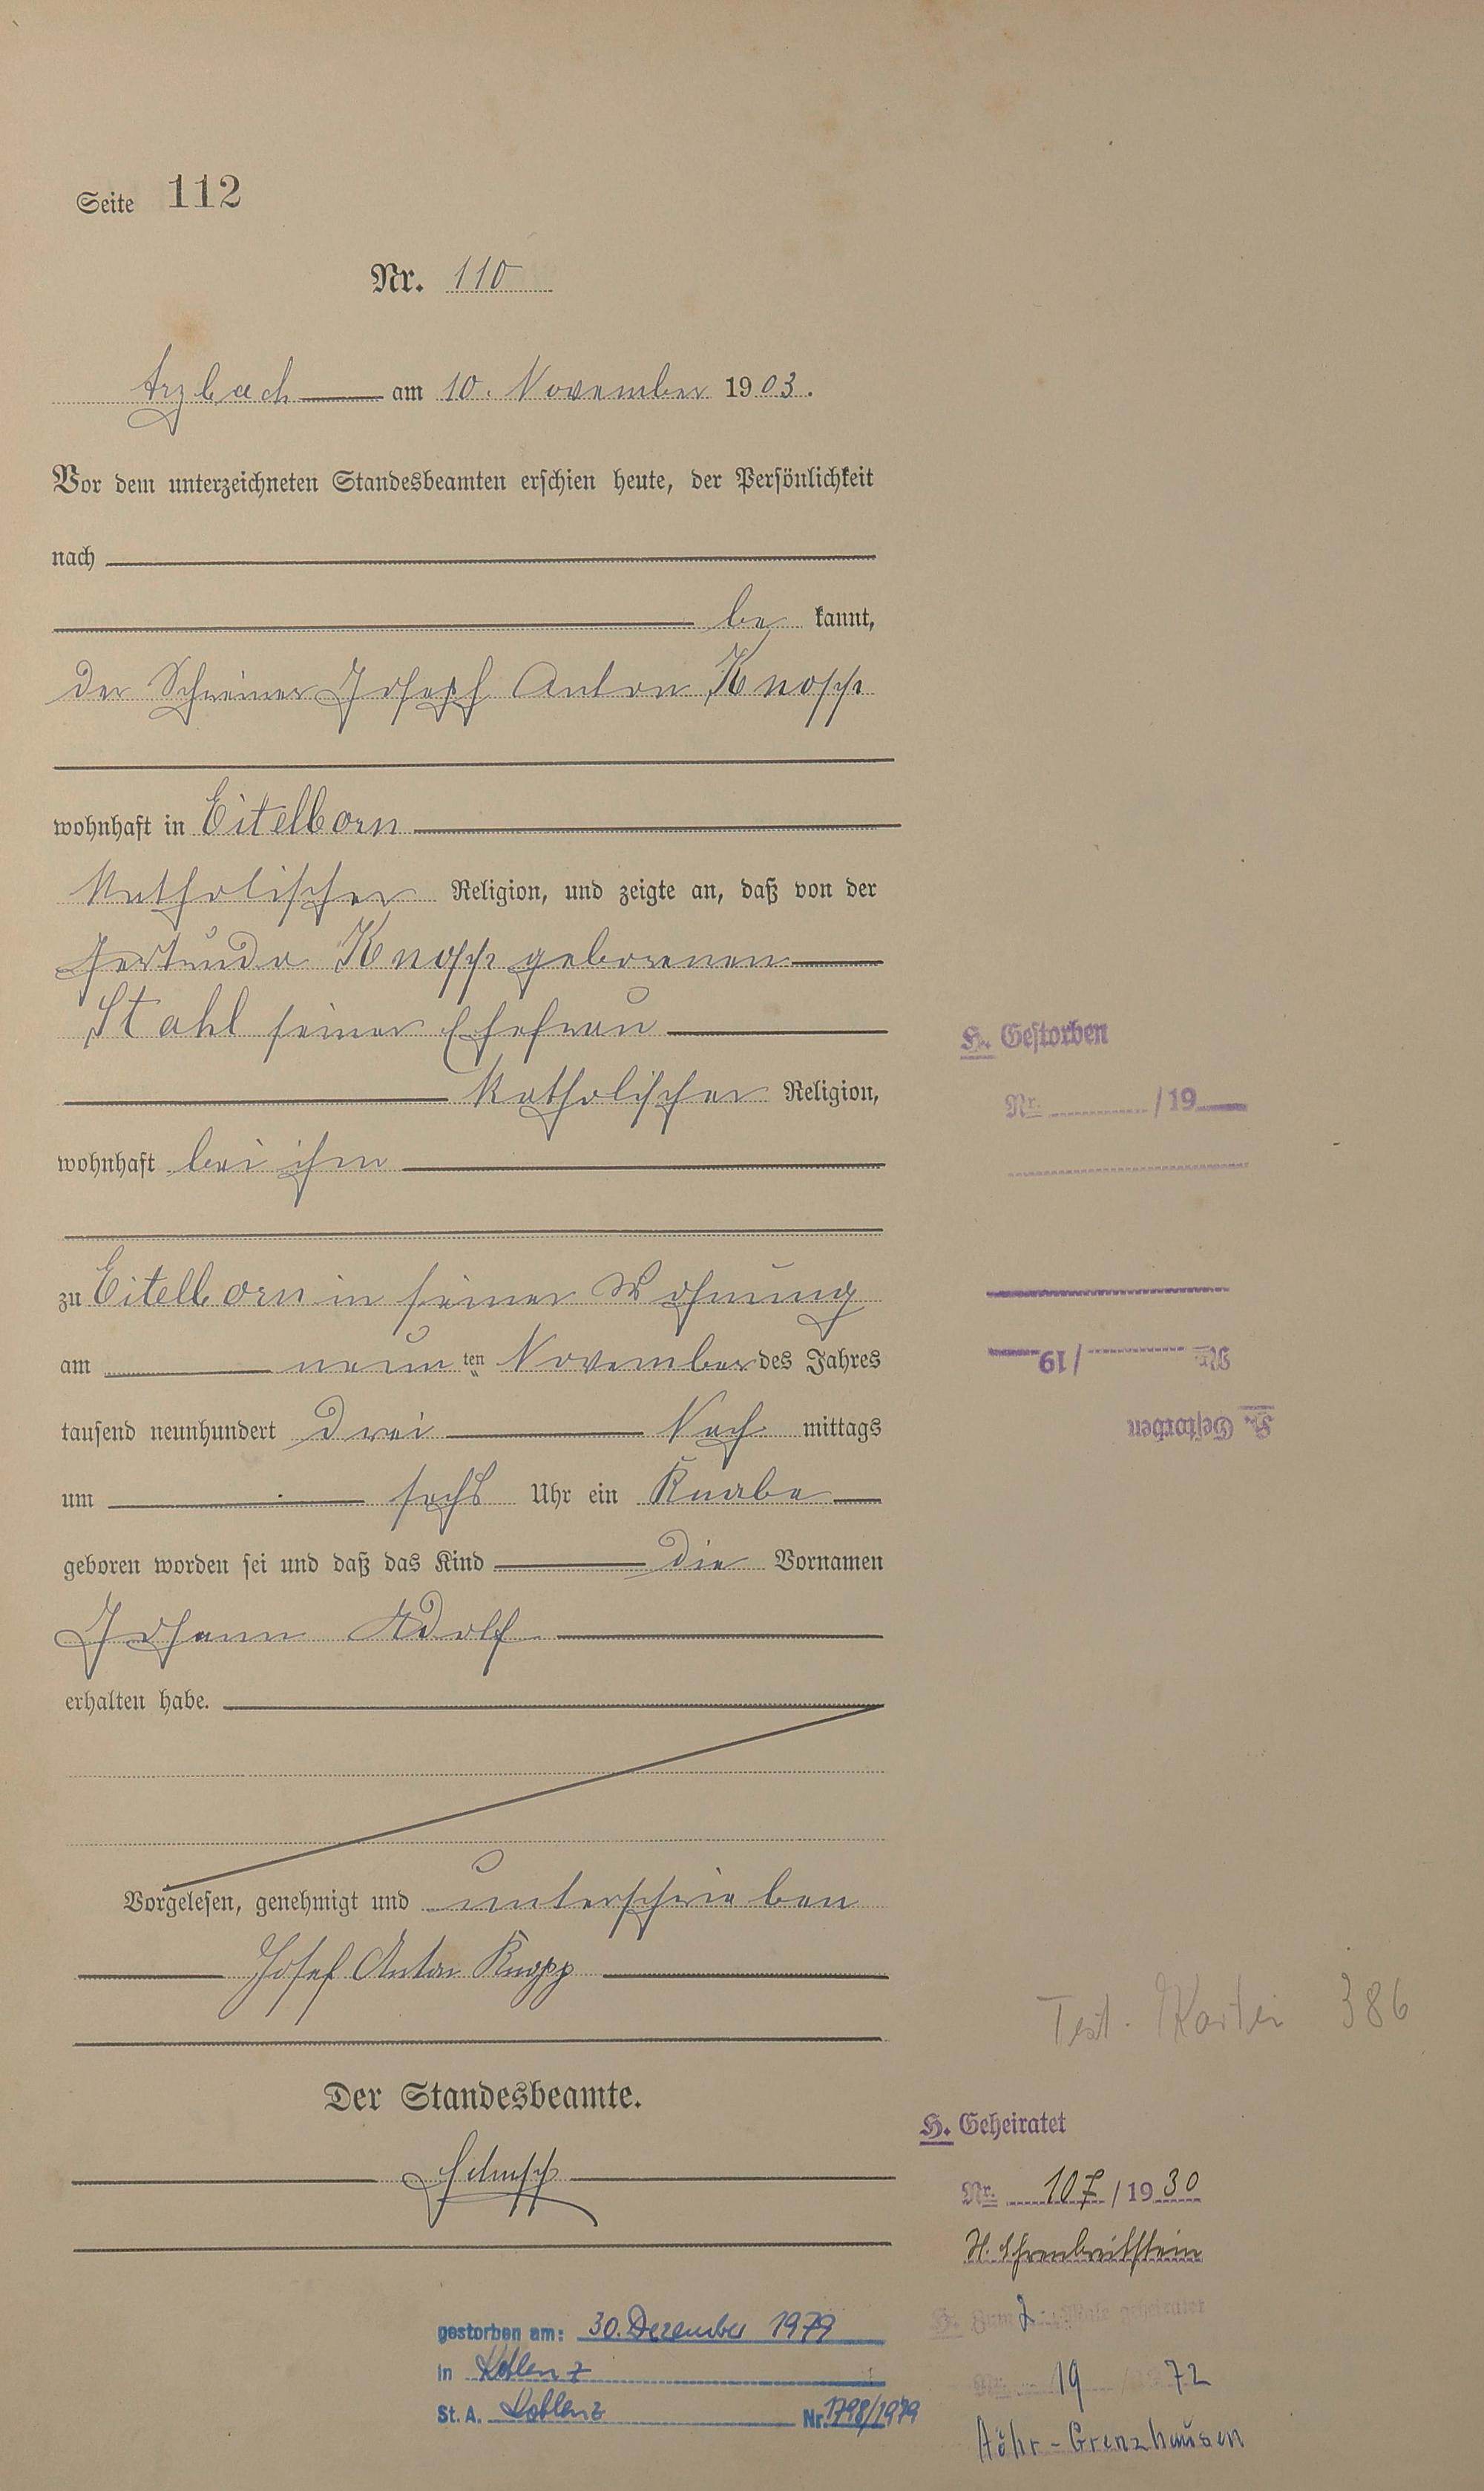 Seite 112
Nr. 110
Arzbach am 10. November 1903.
Vor dem unterzeichneten Standesbeamten erschien heute, der Persönlichkeit
nach
be kannt,
der Schreiner Joseph Anton Knopp
wohnhaft in Eitelborn
katholischer Religion, und zeigte an, daß von der
Gertrude Knopp geborenen
Stahl seiner Ehefrau
katholischer Religion,
wohnhaft bei ihm
zu Eitelborn in seiner Wohnung
am neun ten November des Jahres
tausend neunhundert drei Nach mittags
um sechs Uhr ein Knabe
geboren worden sei und daß das Kind die Vornamen
Johann Adolf
erhalten habe.
Vorgelesen, genehmigt und unterschrieben
Josef Anton Knopp
Der Standesbeamte.
gestorben am: 30. Dezember 1979
in Koblenz
St. A. Koblenz Nr. 1798/1979
H. Gestorben
Nr. /19
Nr. /19
H. Gestorben
Test. Kartei 386
H. Geheiratet
Nr. 107/1930
H. Ehrenbreitstein
H. Zum 2. Male geheiratet
Nr. 19 / 72
Höhr-Grenzhausen